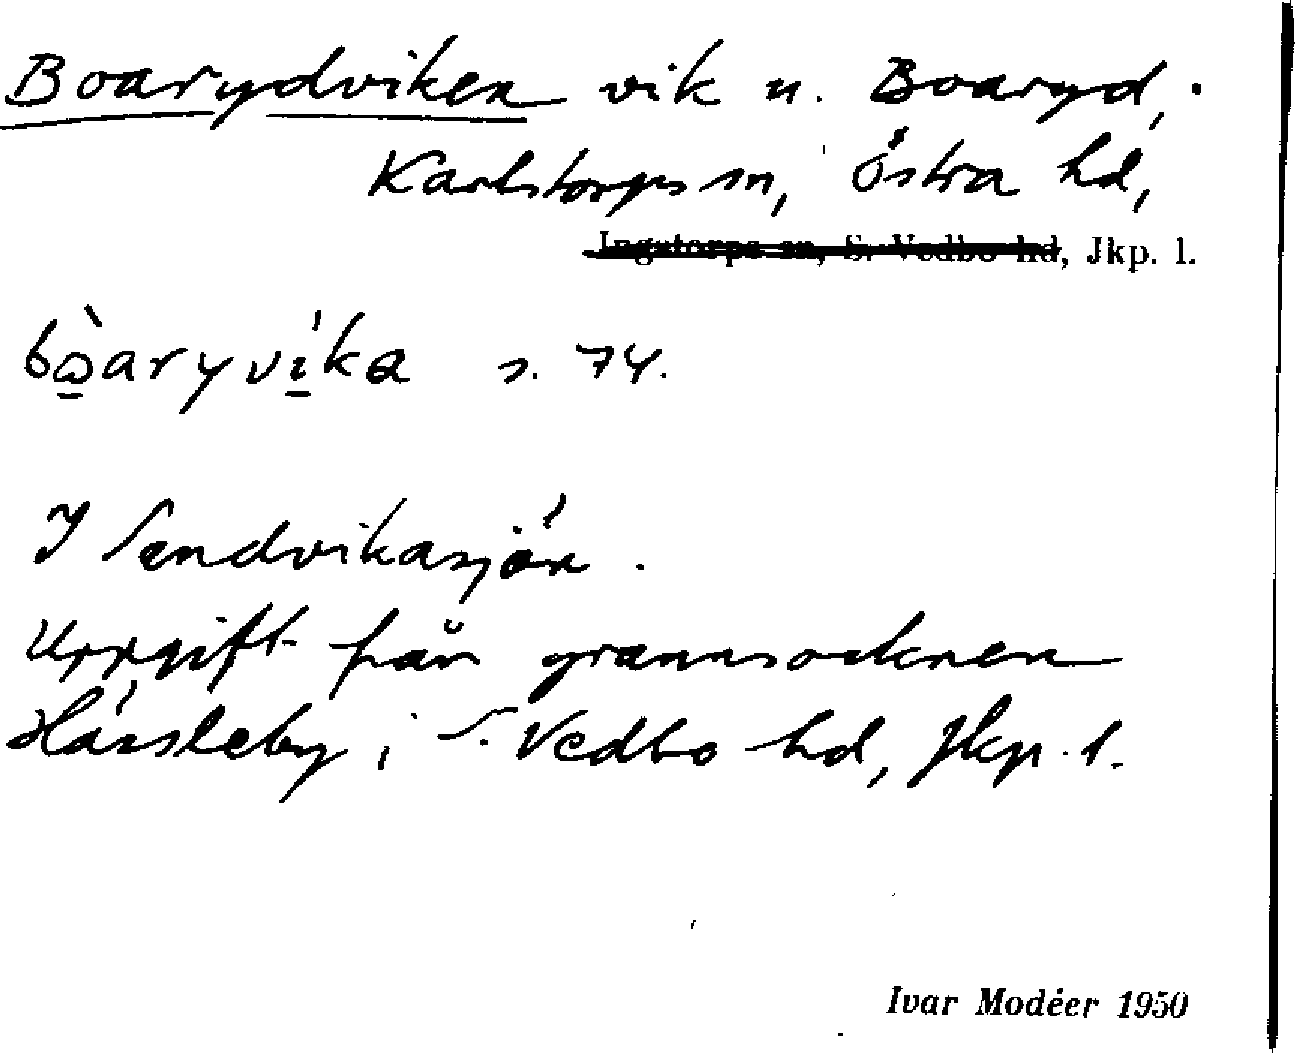 Boarydviken vik u. Boaryd,
Karlstorps sn, Östra hd,
Ingatorps sn, S. Vedbo hd, Jkp. l.
bòaryvíka s. 74.
I Sandvikasjön.
Uppgift från grannsocknen
Hässleby i S. Vedbo hd, Jkp. l.
Ivar Modéer 1950